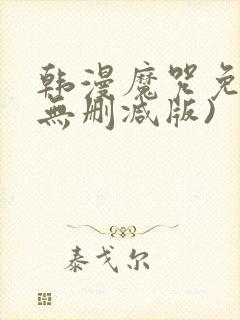 韩漫魔咒免
無删减版)
泰戈尔